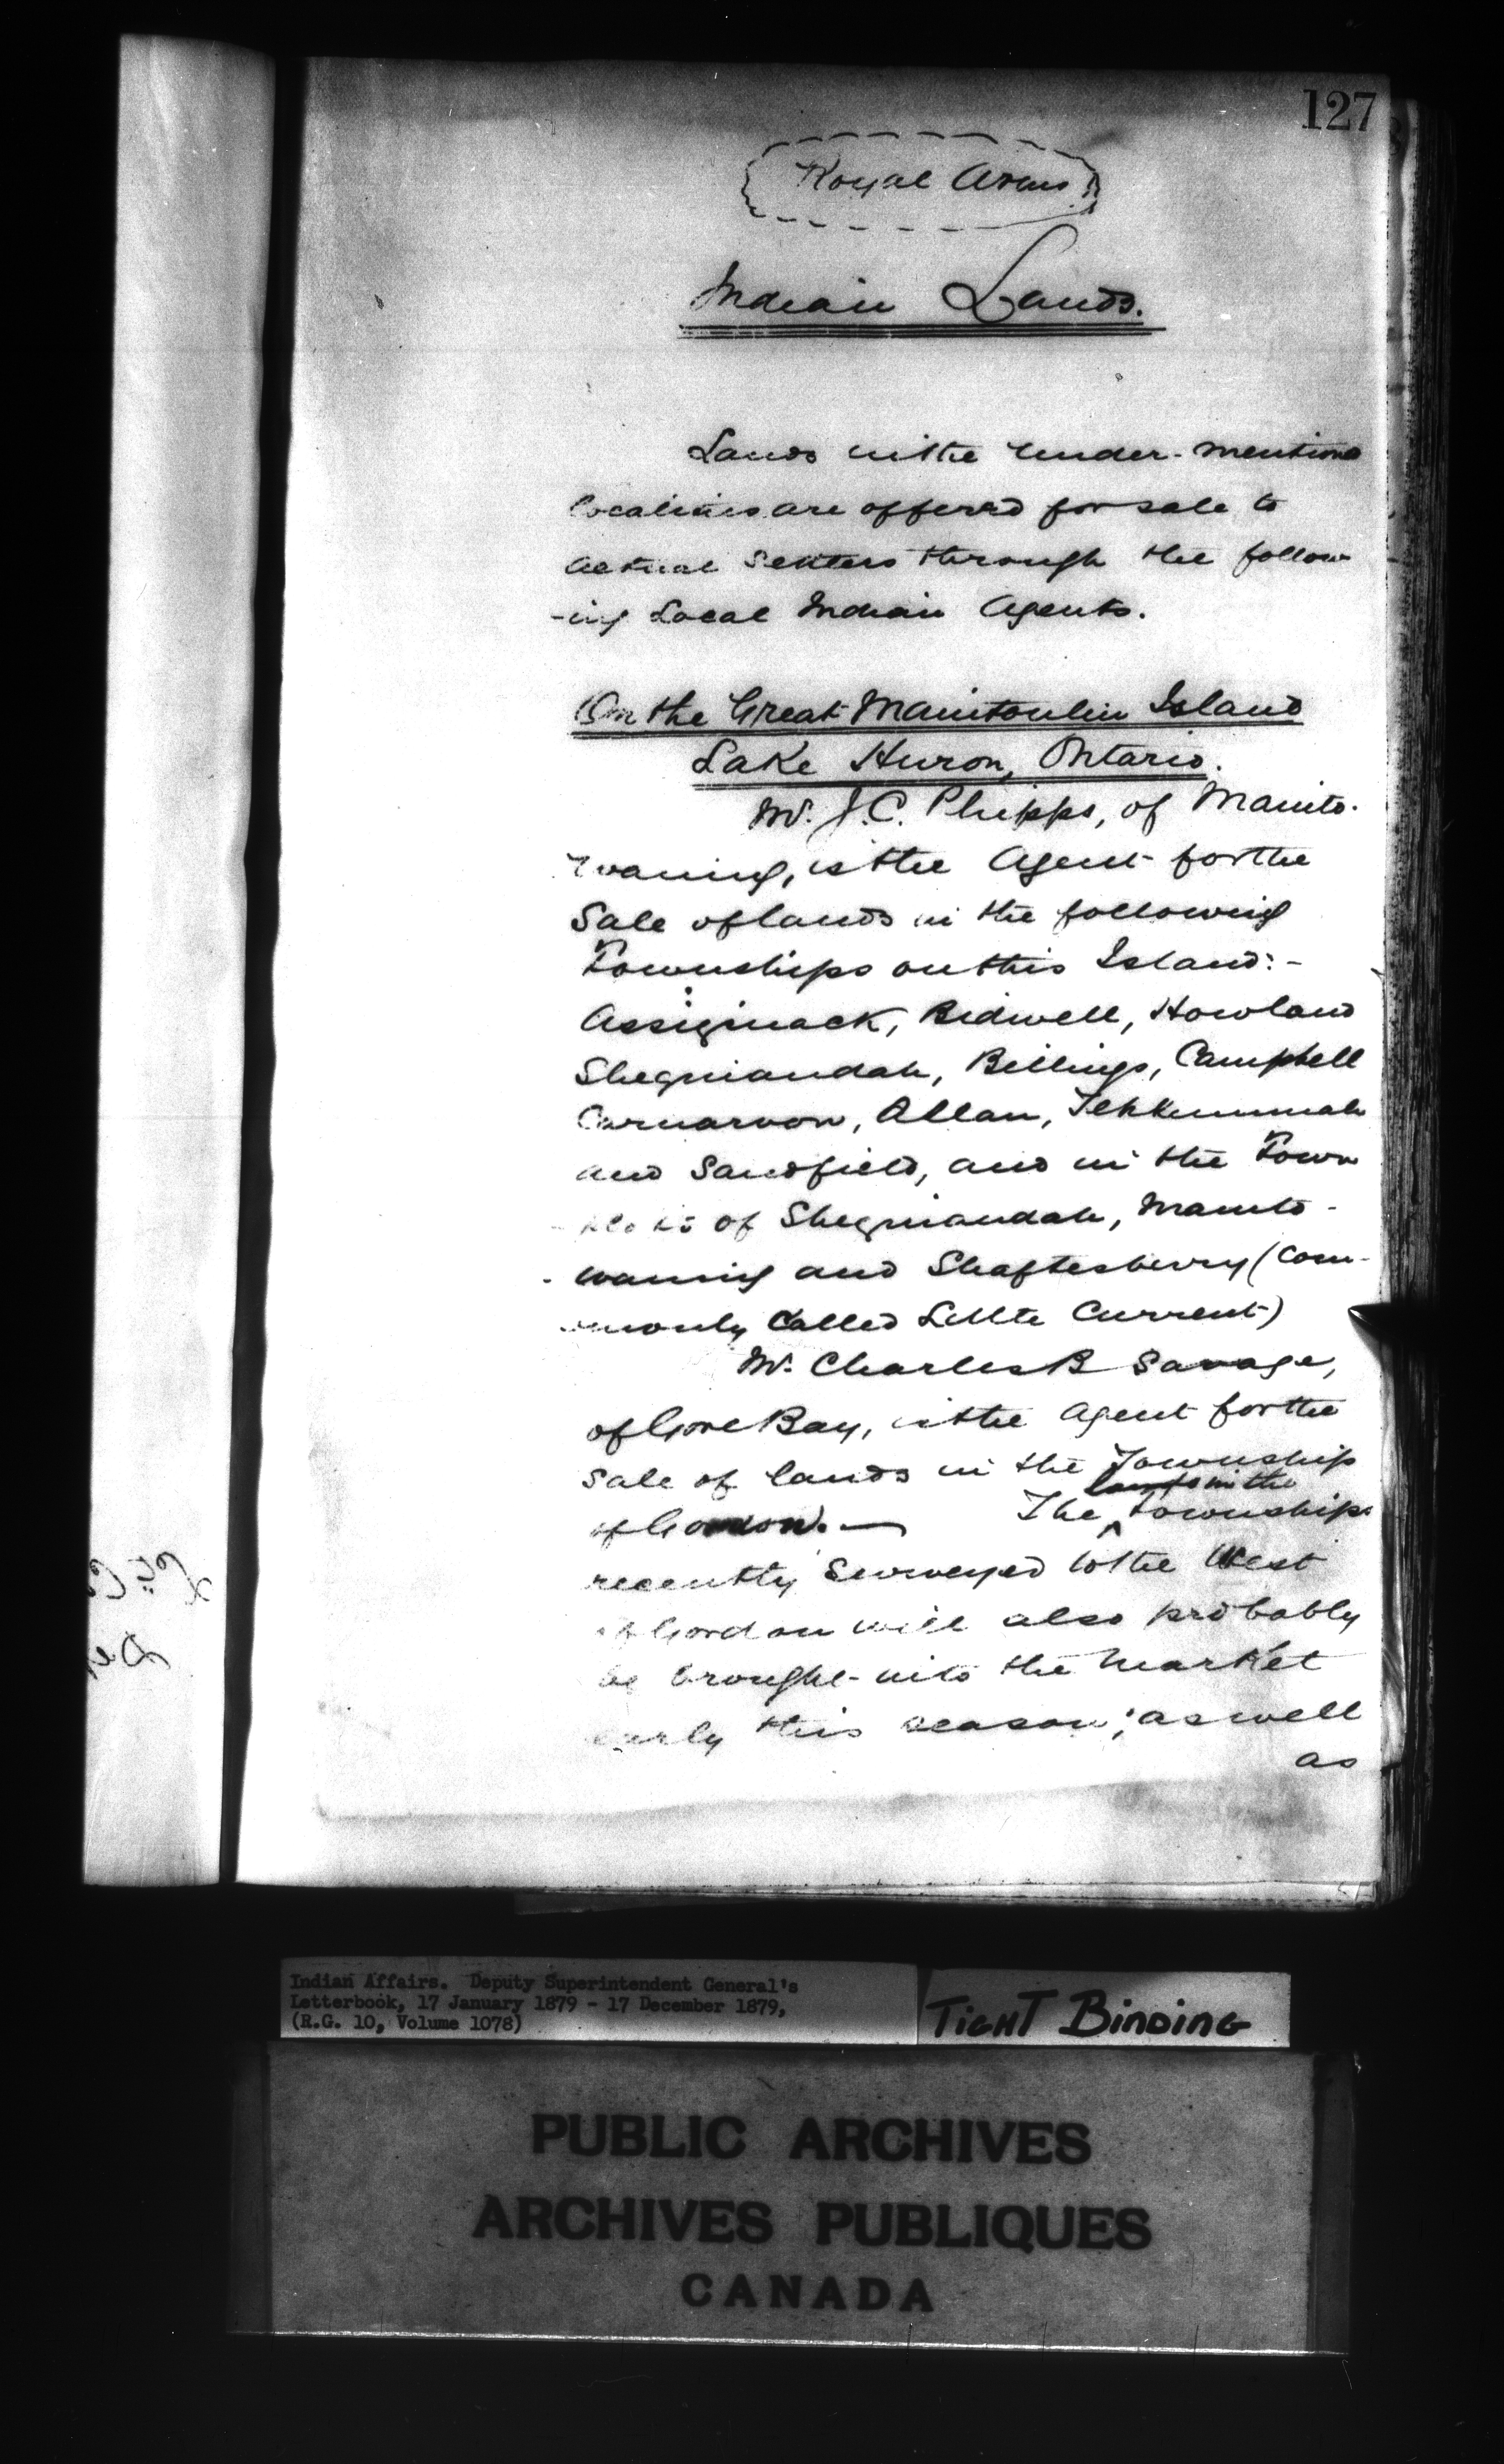 127
Royal Arms
Indian Lands.
Lands in the under-mentioned
localities are offered for sale to
actual Settlers through the follow
-ing Local Indian Agents.
On the Great Manitoulin Island
Lake Huron, Ontario.
Mr. J. C. Phipps, of Manito-
waning, is the Agent for the
Sale of lands in the following
Townships on this Island:-
Assiginack, Bidwell, Howland
Sheguiandah, Billings, Campbell
Carnarvon, Allan, Tehkummah
and Sandfield, and in the Town
of Sheguiandah, Manito-
-waning and Shaftesberry (Com-
-monly Called Little Current)
Mr. Charles B Savage,
of Gore Bay, is the Agent for the
Sale of lands in the Township
of Gordon. — The lands in the Townships
recently Surveyed to the West
of Gordon will also probably
be brought into the Market
early this season; as well
as
Indian Affairs. Deputy Superintendent General's
Letterbook, 17 January 1879 - 17 December 1879,
(R.G. 10, Volume 1078)
TIGHT BINDING
PUBLIC ARCHIVES
ARCHIVES PUBLIQUES
CANADA